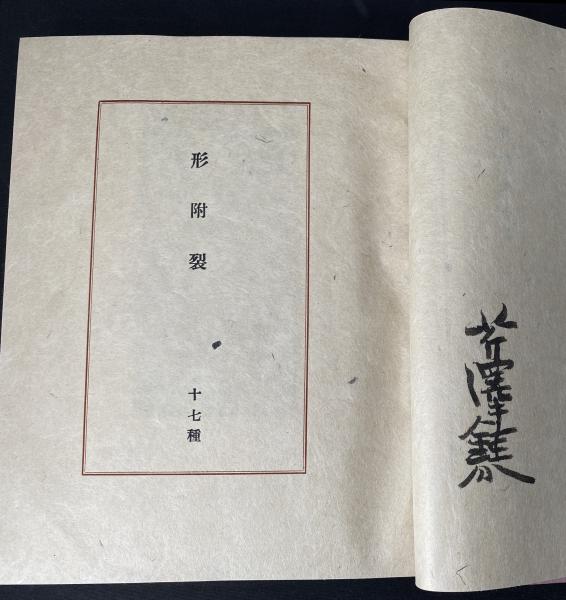 芹澤銈介
形附裂
十七種